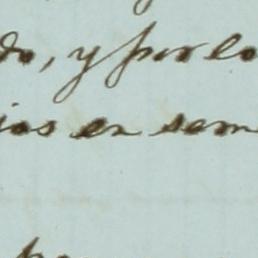 do, y por lo
ios en sem